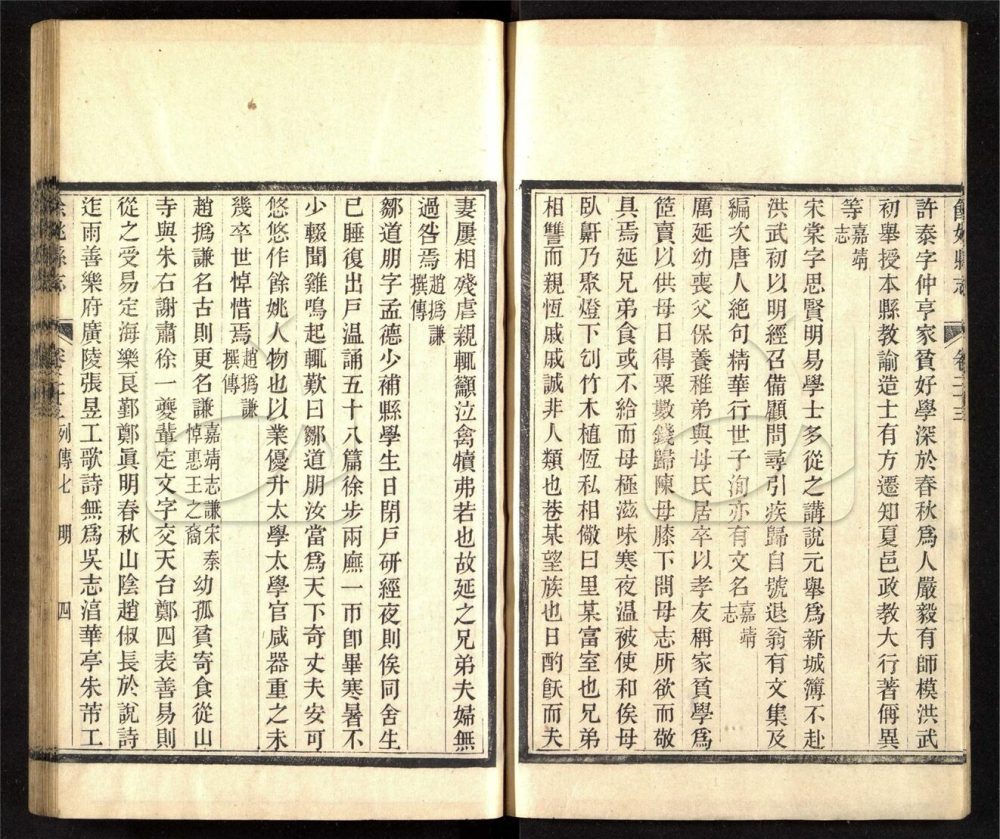 餘姚縣志 卷二十三
許泰字仲亨家貧好學深於春秋爲人嚴毅有師模洪武
初舉授本縣教諭造士有方遷知夏邑政教大行著偁異
等嘉靖志
宋棠字思賢明易學士多從之講說元舉爲新城簿不赴
洪武初以明經召備顧問尋引疾歸自號退翁有文集及
編次唐人絶句精華行世子洵亦有文名嘉靖志
厲延幼喪父保養稚弟與母氏居卒以孝友稱家貧學爲
筐賣以供母日得粟數錢歸陳母膝下問母志所欲而敬
具焉延兄弟食或不給而母極滋味寒夜温被使和俟母
臥鼾乃聚燈下刉竹木植恆私相儆曰里某富室也兄弟
相讐而親恆戚戚誠非人類也巷某望族也日酌飫而夫
妻屢相殘虐親輒籲泣禽犢弗若也故延之兄弟夫婦無
過咎焉趙撝謙撰傳
鄒道朋字孟德少補縣學生日閉戸研經夜則俟同舍生
已睡復出戸温誦五十八篇徐步兩廡一帀卽畢寒暑不
少輟聞雞鳴起輒歎曰鄒道朋汝當爲天下奇丈夫安可
悠悠作餘姚人物也以業優升太學太學官咸器重之未
幾卒世悼惜焉趙撝謙撰傳
趙撝謙名古則更名謙嘉靖志謙宋秦悼惠王之裔幼孤貧寄食從山
寺與朱右謝肅徐一夔輩定文字交天台鄭四表善易則
從之受易定海樂良鄞鄭眞明春秋山陰趙俶長於說詩
迮雨善樂府廣陵張昱工歌詩無爲吳志湻華亭朱芾工
餘姚縣志 卷二十三 列傳七 明 四